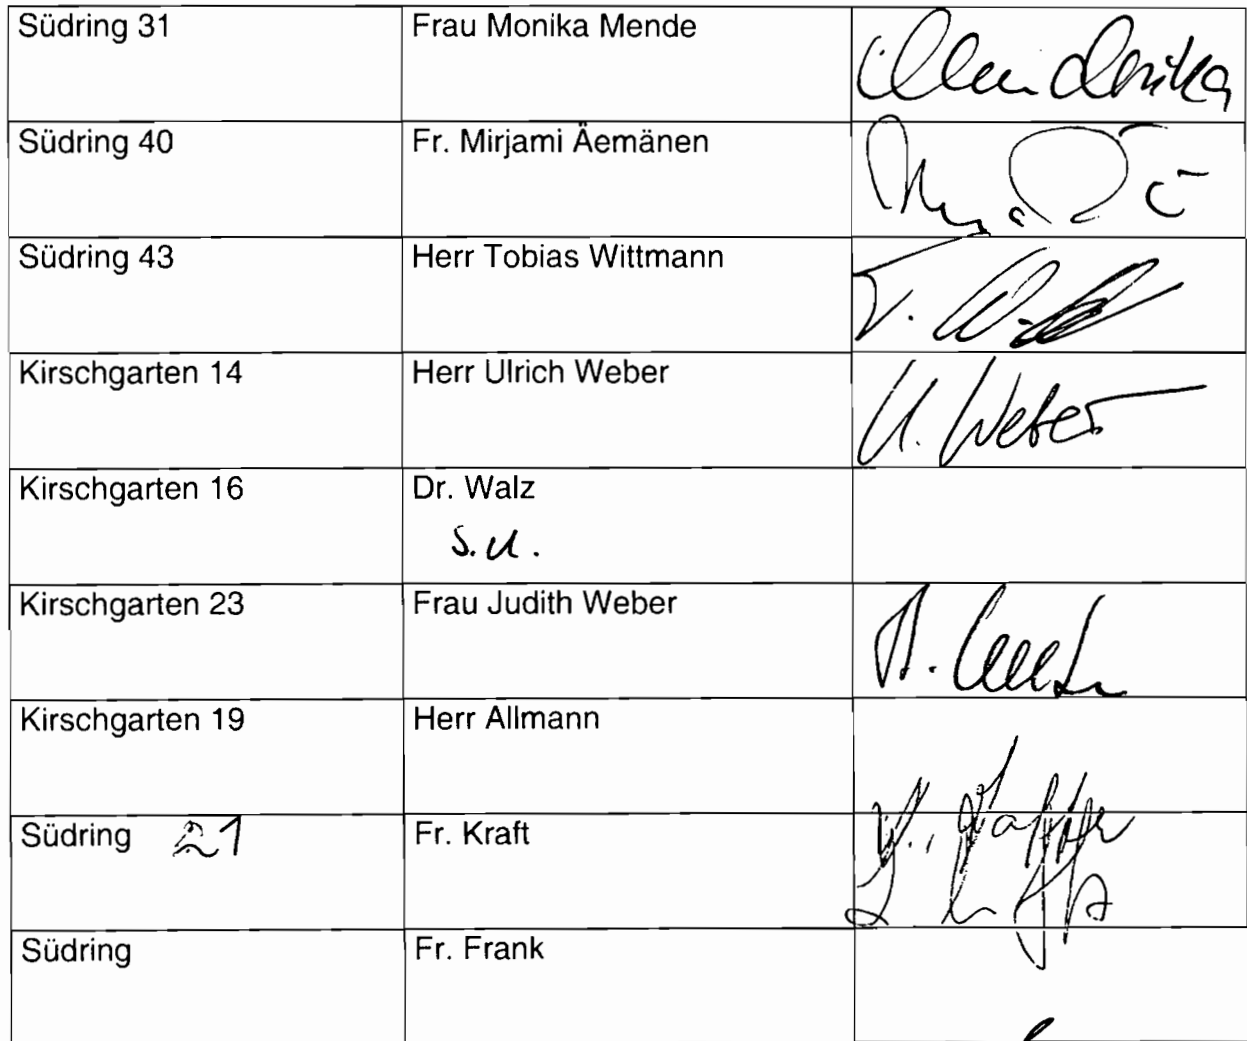 Südring 31 Frau Monika Mende
Südring 40 Fr. Mirjami Äemänen
Südring 43 Herr Tobias Wittmann
Kirschgarten 14 Herr Ulrich Weber U. Weber
Kirschgarten 16 Dr. Walz
s.u.
Kirschgarten 23 Frau Judith Weber
Kirschgarten 19 Herr Allmann
Südring 21 Fr. Kraft
Südring Fr. Frank